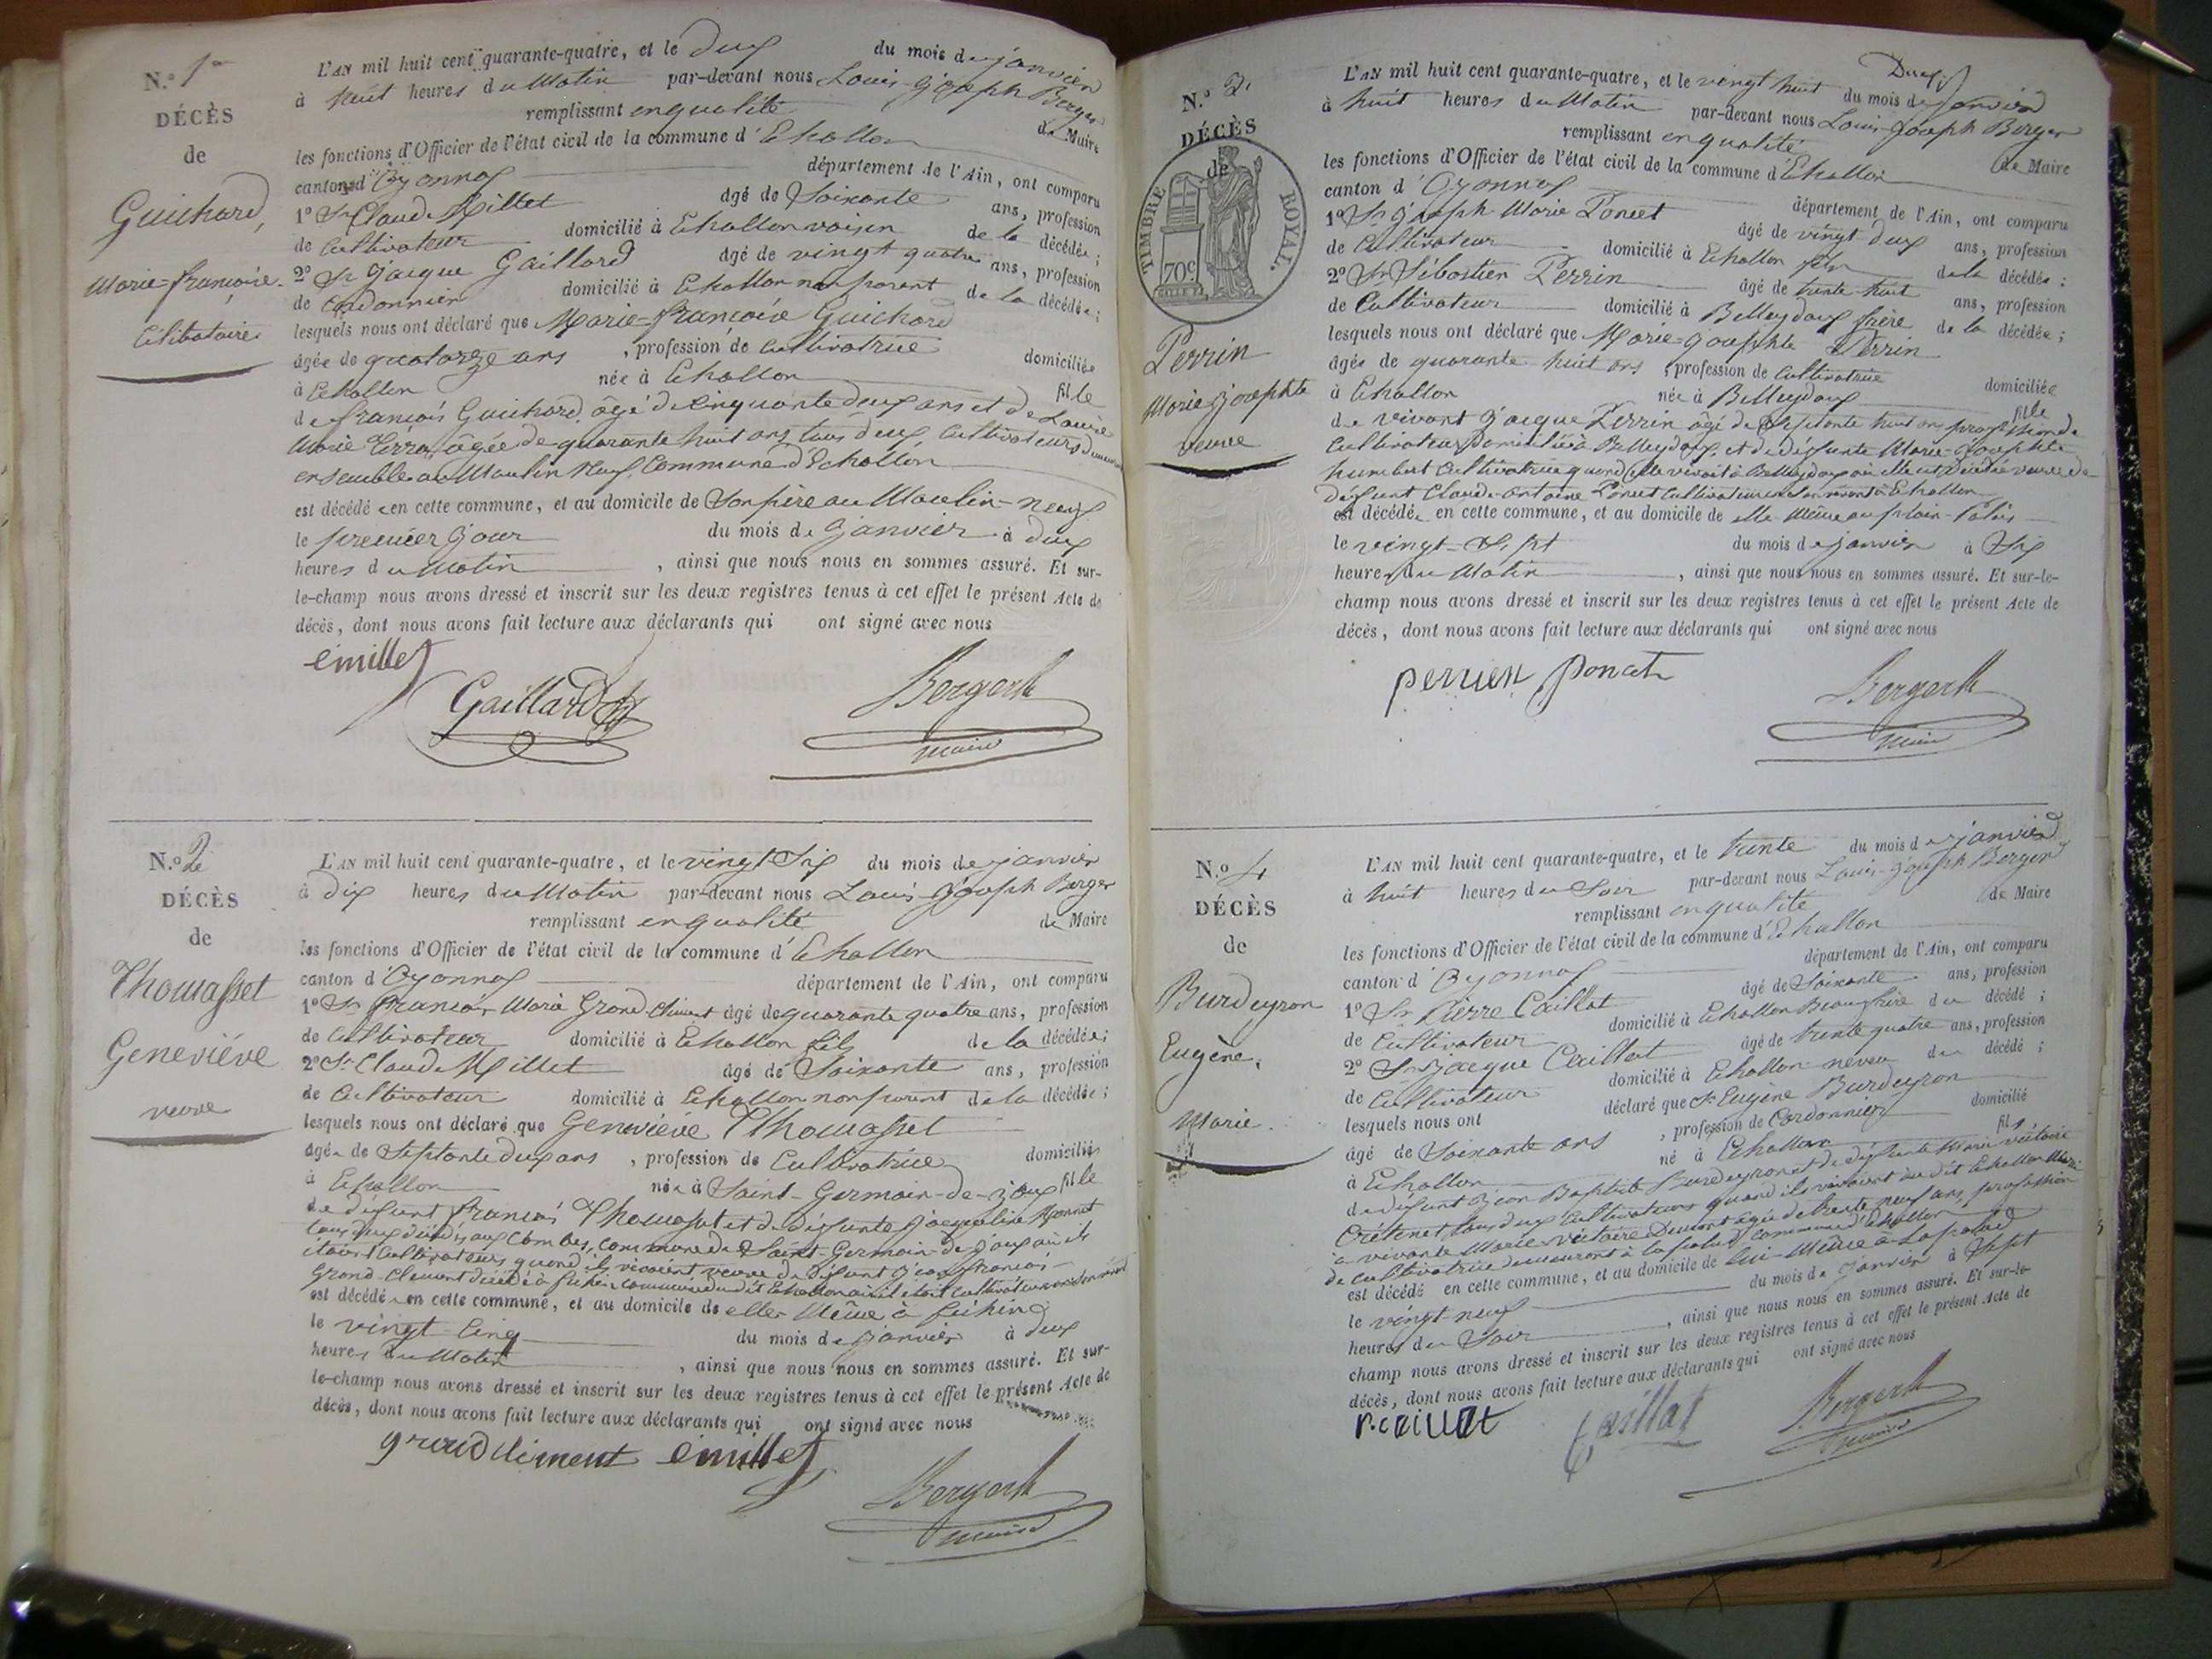 N.º 1er
DÉCÈS
de
Guichard,
Marie-françoise.
Célibataire
L'AN mil huit cent quarante-quatre, et le deux du mois de janvier
à huit heures du Matin par-devant nous Louis-Joseph Berger
remplissant en qualité de Maire
les fonctions d'Officier de l'état civil de la commune d'Echallon
canton d'Oyonnax département de l'Ain, ont comparu
1º Sr Claude Millet âgé de Soixante ans, profession
de Cultivateur domicilié à Echallon voisin de la décédée;
2º Sr Jacque Gaillard âgé de vingt quatre ans, profession
de Cordonnier domicilié à Echallon non parent de la décédée;
lesquels nous ont déclaré que Marie-françoise Guichard
âgée de quatorze ans, profession de Cultivatrice domiciliée
à Echallon née à Echallon fille
de françois Guichard, âgé de Cinquante deux ans et de Louise
Marie âgée de quarante huit ans, tous deux Cultivateurs
ensemble au Moulin Neuf, Commune d'Echallon
est décédée en cette commune, et au domicile de Son père au Moulin-neuf
le premier jour du mois de Janvier à deux
heures du Matin, ainsi que nous nous en sommes assuré. Et sur-
le-champ nous avons dressé et inscrit sur les deux registres tenus à cet effet le présent Acte de
décès, dont nous avons fait lecture aux déclarants qui ont signé avec nous
émillet
Gaillard Berger
maire
N.º 2e
DÉCÈS
de
Thomasset
Geneviève
veuve
L'AN mil huit cent quarante-quatre, et le vingt Six du mois de janvier
à dix heures du Matin par-devant nous Louis Joseph Berger
remplissant en qualité de Maire
les fonctions d'Officier de l'état civil de la commune d'Echallon
canton d'Oyonnax département de l'Ain, ont comparu
1º Sr françois Marie Grand-Clément âgé de quarante quatre ans, profession
de Cultivateur domicilié à Echallon fils de la décédée;
2º Sr Claude Millet âgé de Soixante ans, profession
de Cultivateur domicilié à Echallon non parent de la décédée;
lesquels nous ont déclaré que Geneviève Thomasset
âgée de Septante deux ans, profession de Cultivatrice domiciliée
à Echallon née à Saint-Germain-de-joux fille
de défunt françois Thomasset et de défunte Jacqueline Monnet
tous deux décédés aux Combes, commune de Saint-Germain-de-joux où ils
étaient Cultivateurs quand ils vivaient veuve de défunt Jean françois
Grand-Clément décédé à commune du dit Echallon où il était Cultivateur
est décédée en cette commune, et au domicile de elle-Même à
le vingt-Cinq du mois de janvier à deux
heures du Matin, ainsi que nous nous en sommes assuré. Et sur-
le-champ nous avons dressé et inscrit sur les deux registres tenus à cet effet le présent Acte de
décès, dont nous avons fait lecture aux déclarants qui ont signé avec nous
grand clément émillet
Berger
maire
N.º 3.
DÉCÈS
de
TIMBRE ROYAL.
70c
Perrin
Marie-josephte
veuve
L'AN mil huit cent quarante-quatre, et le vingt huit du mois de janvier
à huit heures du Matin par-devant nous Louis-Joseph Berger
remplissant en qualité de Maire
les fonctions d'Officier de l'état civil de la commune d'Echallon
canton d'Oyonnax département de l'Ain, ont comparu
1º Sr Joseph Marie Poncet âgé de vingt deux ans, profession
de Cultivateur domicilié à Echallon fils de la décédée;
2º Sr Sébastien Perrin âgé de trente huit ans, profession
de Cultivateur domicilié à Belleydoux frère de la décédée;
lesquels nous ont déclaré que Marie-Josephte Perrin
âgée de quarante huit ans, profession de Cultivatrice domiciliée
à Echallon née à Belleydoux fille
de vivant Jacque Perrin âgé de Septante huit ans profession de
Cultivateur, domicilié à Belleydoux, et de défunte Marie-Josephte
humbert Cultivatrice quand elle vivait à Belleydoux où elle est décédée veuve de
défunt Claude-Antoine Poncet Cultivateur en Son vivant à Echallon
est décédée en cette commune, et au domicile de elle-Même au
le vingt-Sept du mois de janvier à Six
heures du Matin, ainsi que nous nous en sommes assuré. Et sur-le-
champ nous avons dressé et inscrit sur les deux registres tenus à cet effet le présent Acte de
décès, dont nous avons fait lecture aux déclarants qui ont signé avec nous
perrien poncet
Berger
maire
N.º 4
DÉCÈS
de
Burdeyron
Eugène,
Marié.
L'AN mil huit cent quarante-quatre, et le trente du mois de janvier
à huit heures du Soir par-devant nous Louis-Joseph Berger
remplissant en qualité de Maire
les fonctions d'Officier de l'état civil de la commune d'Echallon
canton d'Oyonnax département de l'Ain, ont comparu
1º Sr Pierre Caillat âgé de Soixante ans, profession
de Cultivateur domicilié à Echallon Beaufrère du décédé;
2º Sr Jacque Caillat âgé de trente quatre ans, profession
de Cultivateur domicilié à Echallon neveu du décédé;
lesquels nous ont déclaré que Sr Eugène Burdeyron
âgé de Soixante ans, profession de Cordonnier domicilié
à Echallon né à Echallon fils
de défunt Jean Baptiste Burdeyron et de défunte Marie victoire
Crétenet, tous deux Cultivateurs quand ils vivaient au dit Echallon Marié
à vivante Marie-victoire âgée de trente neuf ans, profession
de cultivatrice demeurant à la commune d'Echallon
est décédé en cette commune, et au domicile de lui-Même à
le vingt-neuf du mois de janvier à Sept
heures du Soir, ainsi que nous nous en sommes assuré. Et sur-le-
champ nous avons dressé et inscrit sur les deux registres tenus à cet effet le présent Acte de
décès, dont nous avons fait lecture aux déclarants qui ont signé avec nous
p. caillat Caillat Berger
maire